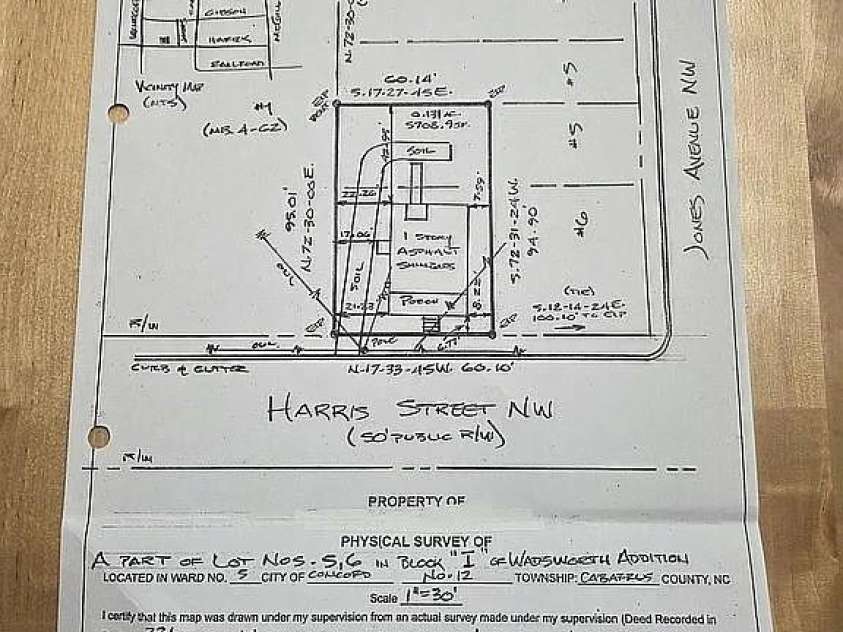 GIBSON
HARRIS
McGILL
VICINITY MAP
(NTS)
#4
(MB. 4-62)
60.14'
S.17-27-45E.
EIP
EIP
0.131 AC.
5708.9 SF.
SOIL
22.26
7.59
95.01'
N.72-30-00E.
S.72-31-24W.
94.90'
17.06'
1 STORY
ASPHALT
SHINGLES
SOIL
OUL
PORCH
21.23
8.22'
#5
#5
#6
JONES AVENUE NW
(TIE)
S.12-14-24E.
100.10' TO EIP
R/W
EIP
EIP
OUL
POLE
CURB & GUTTER
N-17-33-45W. 60.10'
HARRIS STREET NW
(50' PUBLIC R/W)
R/W
PROPERTY OF
PHYSICAL SURVEY OF
A PART OF LOT NOS. 5,6 IN BLOCK "I" OF WADSWORTH ADDITION
LOCATED IN WARD NO. 5 CITY OF CONCORD NO. 12 TOWNSHIP: CABARRUS COUNTY, NC
Scale 1"=30'
I certify that this map was drawn under my supervision from an actual survey made under my supervision (Deed Recorded in